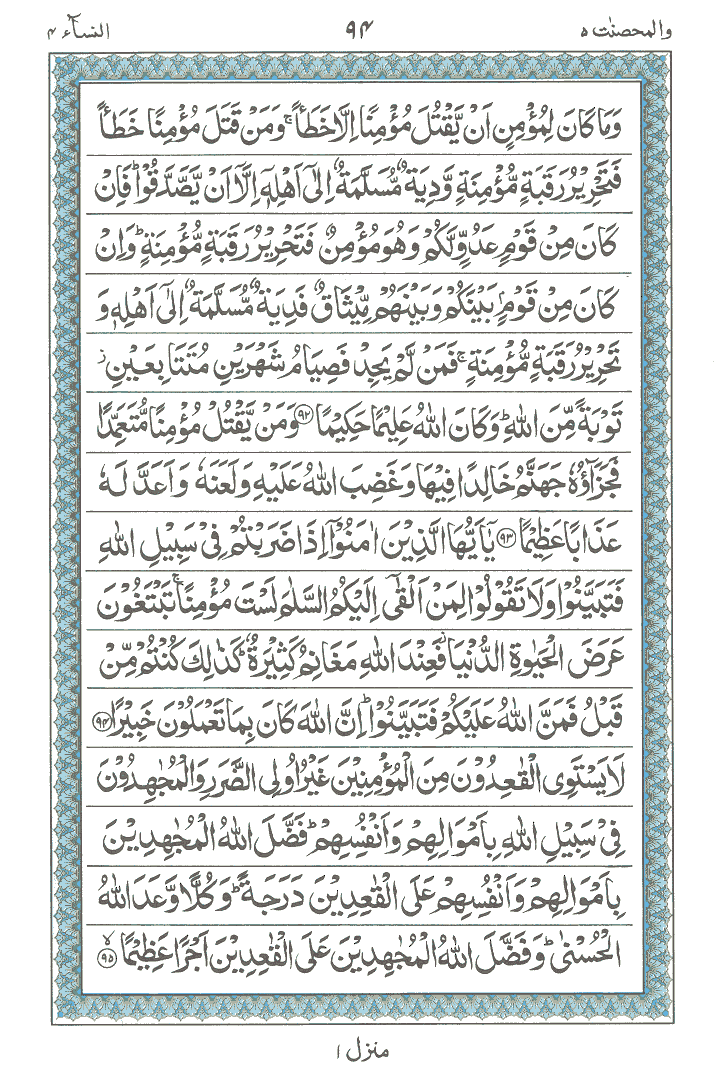 والمحصنٰت ۵
۹۴
النسآء ۴
وَمَا كَانَ لِمُؤْمِنٍ اَنْ يَّقْتُلَ مُؤْمِنًا اِلَّا خَطَـًٔا ۚ وَمَنْ قَتَلَ مُؤْمِنًا خَطَـًٔا
فَتَحْرِيْرُ رَقَبَةٍ مُّؤْمِنَةٍ وَّدِيَةٌ مُّسَلَّمَةٌ اِلٰٓى اَهْلِهٖٓ اِلَّآ اَنْ يَّصَّدَّقُوْا ؕ فَاِنْ
كَانَ مِنْ قَوْمٍ عَدُوٍّ لَّكُمْ وَهُوَ مُؤْمِنٌ فَتَحْرِيْرُ رَقَبَةٍ مُّؤْمِنَةٍ ؕ وَاِنْ
كَانَ مِنْ قَوْمٍۭ بَيْنَكُمْ وَبَيْنَهُمْ مِّيْثَاقٌ فَدِيَةٌ مُّسَلَّمَةٌ اِلٰٓى اَهْلِهٖ وَ
تَحْرِيْرُ رَقَبَةٍ مُّؤْمِنَةٍ ۚ فَمَنْ لَّمْ يَجِدْ فَصِيَامُ شَهْرَيْنِ مُتَتَابِعَيْنِ ز
تَوْبَةً مِّنَ اللّٰهِ ؕ وَكَانَ اللّٰهُ عَلِيْمًا حَكِيْمًا ۹۲ وَمَنْ يَّقْتُلْ مُؤْمِنًا مُّتَعَمِّدًا
فَجَزَآؤُهٗ جَهَنَّمُ خَالِدًا فِيْهَا وَغَضِبَ اللّٰهُ عَلَيْهِ وَلَعَنَهٗ وَاَعَدَّ لَهٗ
عَذَابًا عَظِيْمًا ۹۳ يٰٓاَيُّهَا الَّذِيْنَ اٰمَنُوْٓا اِذَا ضَرَبْتُمْ فِيْ سَبِيْلِ اللّٰهِ
فَتَبَيَّنُوْا وَلَا تَقُوْلُوْا لِمَنْ اَلْقٰٓى اِلَيْكُمُ السَّلٰمَ لَسْتَ مُؤْمِنًا ۚ تَبْتَغُوْنَ
عَرَضَ الْحَيٰوةِ الدُّنْيَا ز فَعِنْدَ اللّٰهِ مَغَانِمُ كَثِيْرَةٌ ؕ كَذٰلِكَ كُنْتُمْ مِّنْ
قَبْلُ فَمَنَّ اللّٰهُ عَلَيْكُمْ فَتَبَيَّنُوْا ؕ اِنَّ اللّٰهَ كَانَ بِمَا تَعْمَلُوْنَ خَبِيْرًا ۹۴
لَا يَسْتَوِى الْقٰعِدُوْنَ مِنَ الْمُؤْمِنِيْنَ غَيْرُ اُولِى الضَّرَرِ وَالْمُجٰهِدُوْنَ
فِيْ سَبِيْلِ اللّٰهِ بِاَمْوَالِهِمْ وَاَنْفُسِهِمْ ؕ فَضَّلَ اللّٰهُ الْمُجٰهِدِيْنَ
بِاَمْوَالِهِمْ وَاَنْفُسِهِمْ عَلَى الْقٰعِدِيْنَ دَرَجَةً ؕ وَكُلًّا وَّعَدَ اللّٰهُ
الْحُسْنٰى ؕ وَفَضَّلَ اللّٰهُ الْمُجٰهِدِيْنَ عَلَى الْقٰعِدِيْنَ اَجْرًا عَظِيْمًا ۙ ۹۵
منزل ۱